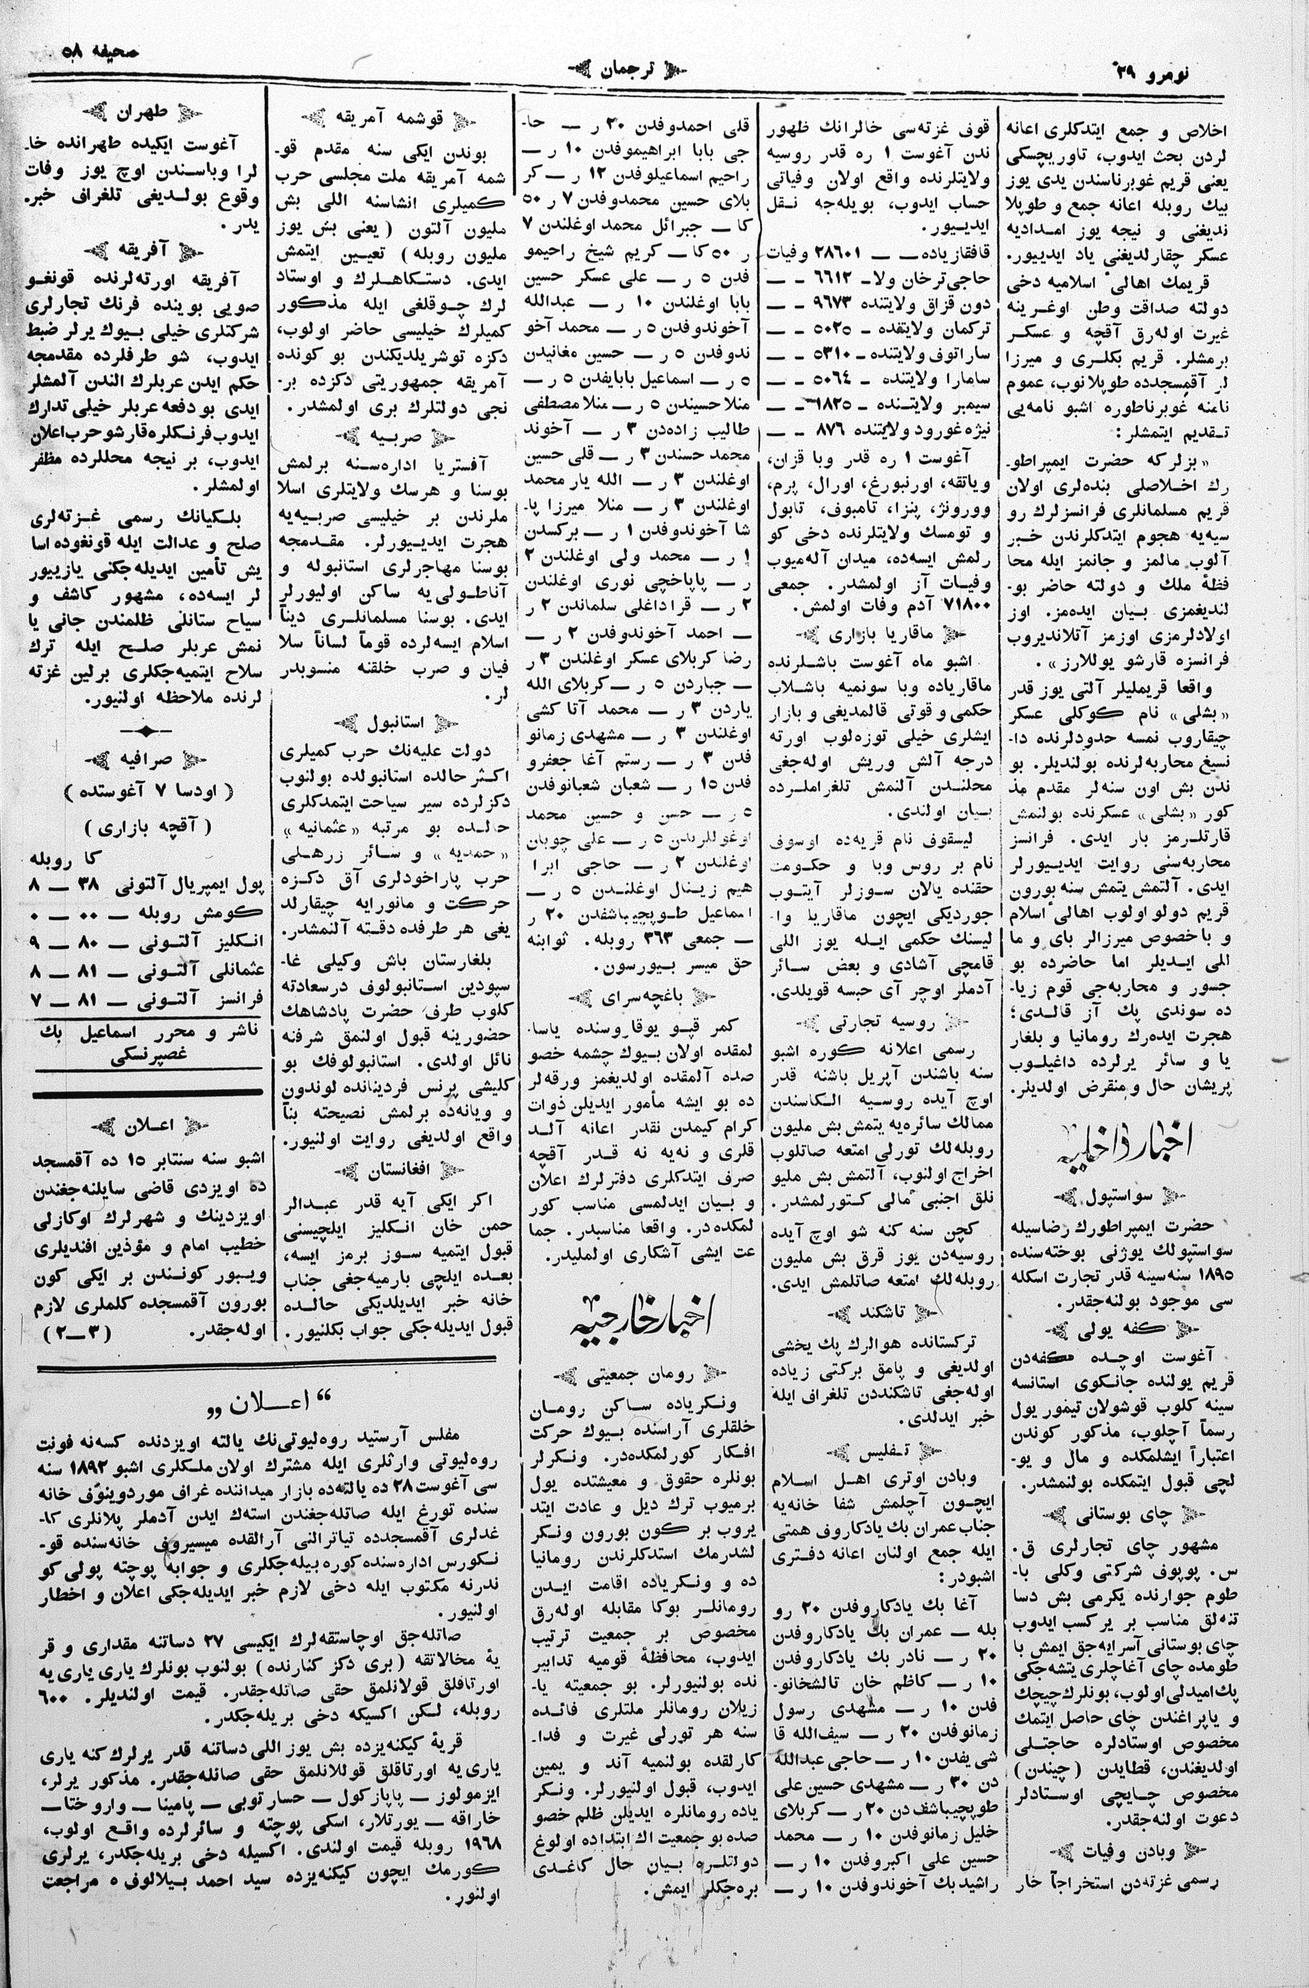 نومرو ۲۹
ترجمان
صحیفه ۵۸
اخلاص و جمع ایتدكلری اعانه
لردن بحث ایدوب، تاوریچسكی
یعنی قریم غوبرناسندن یدی یوز
بیك روبله اعانه جمع و طوپلا
ندیغنی و نیجه یوز امدادیه
عسكر چقارلدیغنی یاد ایدییور.
قریمك اهالی اسلامیه دخی
دولته صداقت وطن اوغرینه
غیرت اوله‌رق آقچه و عسكر
برمشلر. قریم بكلری و میرزا
لر آقمسجدده طوپلانوب، عموم
نامنه غوبرناطوره اشبو نامه‌یی
تقدیم ایتمشلر:
« بزلركه حضرت ایمپراطو-
رك اخلاصلی بنده‌لری اولان
قریم مسلمانلری فرانسزلرك رو
سیه‌یه هجوم ایتدكلرندن خبر
آلوب مالمز و جانمز ایله محا
فظهٔ ملك و دولته حاضر بو-
لندیغمزی بیان ایده‌مز. اوز
اولادلرمزی اوزمز آتلاندیروب
فرانسزه قارشو یوللارز ».
واقعا قریملیلر آلتی یوز قدر
«بشلی» نام كوكلی عسكر
چیقاروب نمسه حدودلرنده دا-
نسیغ محاربه‌لرنده بولندیلر. بو
ندن بش اون سنه‌لر مقدم مذ
كور «بشلی» عسكرنده بولنمش
قارتلرمز بار ایدی. فرانسز
محاربه‌سنی روایت ایدییورلر
ایدی. آلتمش یتمش سنه بورون
قریم دولو اولوب اهالی اسلام
و باخصوص میرزالر بای و ما
للی ایدیلر اما حاضرده بو
جسور و محاربه‌جی قوم زیا-
ده سوندی پك آز قالدی؛
هجرت ایده‌رك رومانیا و بلغار
یا و سائر یرلرده داغیلوب
پریشان حال و منقرض اولدیلر.
اخبار داخلیه
سواستپول
حضرت ایمپراطورك رضاسیله
سواستپولك یوژنی بوخته‌سنده
۱۸۹۵ سنه‌سینه قدر تجارت اسكله
سی موجود بولنه‌جقدر.
كفه یولی
آغوست اوچده كفه‌دن
قریم یولنده جانكوی استانسه
سینه كلوب قوشولان تیمور یول
رسماً آچلوب، مذكور كوندن
اعتباراً ایشلمكده و مال و یو-
لجی قبول ایتمكده بولنمشدر.
چای بوستانی
مشهور چای تجارلری ق.
س. پوپوف شركتی وكلی با-
طوم جوارنده یكرمی بش دسا
تنه‌لق مناسب بر یر كسب ایدوب
چای بوستانی آسرایه‌جق ایمش با
طومده چای آغاچلری یتشه‌جكی
پك امیدلی اولوب، بونلرك چیچك
و یاپراغندن چای حاصل ایتمك
مخصوص اوستادلره حاجتلی
اولدیغندن، قطایدن (چیندن)
مخصوص چایچی اوستادلر
دعوت اولنه‌جقدر.
وبادن وفیات
رسمی غزته‌دن استخراجاً خار
قوف غزته‌سی خالرانك ظهور
ندن آغوست ۱ ره قدر روسیه
ولایتلرنده واقع اولان وفیاتی
حساب ایدوب، بویله‌جه نقل
ایدییور.
قافقازیاده — — ۲۸۶۰۱ وفیات
حاجی‌ترخان ولا- ۶۶۱۲ — —
دون قزاق ولایتنده ۹۶۷۳ — —
تركمان ولایتنده — ۵۰۲۵ — —
ساراتوف ولایتنده — ۵۳۱۰ — —
سامارا ولایتنده — ۵۰۶۴ — —
سیمبر ولایتنده — ۱۸۲۵ — —
نیژه‌غورود ولایتنده ۸۷۶ — —
آغوست ۱ ره قدر وبا قزان،
ویاتقه، اورنبورغ، اورال، پرم،
وورونژ، پنزا، تامبوف، تابول
و تومسك ولایتلرنده دخی كو
رلمش ایسه‌ده، میدان آله‌میوب
وفیات آز اولمشدر. جمعی
۷۱۸۰۰ آدم وفات اولمش.
ماقاریا بازاری
اشبو ماه آغوست باشلرنده
ماقاریاده وبا سونمیه باشلاب
حكمی و قوتی قالمدیغی و بازار
ایشلری خیلی توزه‌لوب اورته
درجه آلش وریش اوله‌جغی
محلندن آلنمش تلغرافلرده
بیان اولندی.
لیسقوف نام قریه‌ده اوسوف
نام بر روس وبا و حكومت
حقنده یالان سوزلر آیتوب
جوردیكی ایچون ماقاریا وا-
لیسنك حكمی ایله یوز اللی
قامچی آشادی و بعض سائر
آدملر اوچر آی حبسه قویلدی.
روسیه تجارتی
رسمی اعلانه كوره اشبو
سنه باشندن آپریل باشنه قدر
اوچ آیده روسیه الكاسندن
ممالك سائره‌یه یتمش بش ملیون
روبله‌لك تورلی امتعه صاتلوب
اخراج اولنوب، آلتمش بش ملیو
نلق اجنبی مالی كتورلمشدر.
كچن سنه كنه شو اوچ آیده
روسیه‌دن یوز قرق بش ملیون
روبله‌لك امتعه صاتلمش ایدی.
تاشكند
تركستانده هوالرك پك یخشی
اولدیغی و پامق بركتی زیاده
اوله‌جغی تاشكنددن تلغراف ایله
خبر ایدلدی.
تفلیس
وبادن اوتری اهل اسلام
ایچون آچلمش شفا خانه‌یه
جناب عمران بك یادكاروف همتی
ایله جمع اولنان اعانه دفتری
اشبودر:
آغا بك یادكاروفدن ۲۰ رو
بله — عمران بك یادكاروفدن
۲۰ ر — نادر بك یادكاروفدن
۱۰ ر — كاظم خان تالشخانو-
فدن ۱۰ ر — مشهدی رسول
زمانوفدن ۲۰ ر — سیف‌الله قا
شی یفدن ۱۰ ر — حاجی عبدالله
دن ۳۰ ر — مشهدی حسین علی
طوپچیباشف دن ۲۰ ر — كربلای
خلیل زمانوفدن ۱۰ ر — محمد
حسین علی اكبروفدن ۱۰ ر —
راشیدبك آخوندوفدن ۱۰ ر —
قلی احمدوفدن ۳۰ ر — حا-
جی بابا ابراهیموفدن ۱۰ ر —
راحیم اسماعیلوفدن ۱۲ ر — كر
بلای حسین محمدوفدن ۷ ر ۵۰
كا — جبرائل محمد اوغلندن ۷
ر ۵۰ كا — كریم شیخ راحیمو
فدن ۵ ر — علی عسكر حسین
بابا اوغلندن ۱۰ ر — عبدالله
آخوندوفدن ۵ ر — محمد آخو
ندوفدن ۵ ر — حسین مغانیدن
۵ ر — اسماعیل بابایفدن ۵ ر —
منلا حسیندن ۵ ر — منلا مصطفی
طالیب زاده‌دن ۳ ر — آخوند
محمد حسندن ۳ ر — قلی حسین
اوغلندن ۳ ر — الله یار محمد
اوغلندن ۳ ر — منلا میرزا پا-
شا آخوندوفدن ۱ ر — بركسدن
۱ ر — محمد ولی اوغلندن ۲
ر — پاپاخچی نوری اوغلندن
۲ ر — قراداغلی سلماندن ۲ ر
— احمد آخوندوفدن ۲ ر —
رضا كربلای عسكر اوغلندن ۳ ر
— جباردن ۵ ر — كربلای الله
یاردن ۳ ر — محمد آتا كشی
اوغلندن ۳ ر — مشهدی زمانو
فدن ۳ ر — رستم آغا جعفرو
فدن ۱۵ ر — شعبان شعبانوفدن
۵ ر — حسن و حسین محمد
اوغوللریندن ۵ ر — علی چوبان
اوغلندن ۲ ر — حاجی ابرا
هیم زینال اوغلندن ۵ ر —
اسماعیل طوپچیباشفدن ۲۰ ر
— جمعی ۳۶۳ روبله. ثوابنه
حق میسر بیورسون.
باغچه‌سرای
كمر قپو یوقاروسنده یاسا-
لمقده اولان بیوك چشمه خصو
صده آلمقده اولدیغمز ورقه‌لر
ده بو ایشه مأمور ایدیلن ذوات
كرام كیمدن نقدر اعانه آلد
قلری و نه‌یه نه قدر آقچه
صرف ایتدكلری دفترلرك اعلان
و بیان ایدلمسی مناسب كور
لمكده‌در. واقعا مناسبدر. جما
عت ایشی آشكاری اولملیدر.
اخبار خارجیه
رومان جمعیتی
ونكریاده ساكن رومان
خلقلری آراسنده بیوك حركت
افكار كورلمكده‌در. ونكرلر
بونلره حقوق و معیشتده یول
برمیوب ترك دیل و عادت ایتد
یروب بر كون بورون ونكر
لشدرمك استدكلرندن رومانیا
ده و ونكریاده اقامت ایدن
رومانلر بوكا مقابله اوله‌رق
مخصوص بر جمعیت ترتیب
ایدوب، محافظهٔ قومیه تدابیر
نده بولنیورلر. بو جمعیته یا-
زیلان رومانلر ملتلری فائده
سنه هر تورلی غیرت و فدا-
كارلقده بولنمیه آند و یمین
ایدوب، قبول اولنیورلر. ونكر
یاده رومانلره ایدیلن ظلم خصو
صده بو جمعیت اك ابتداده اولوغ
دولتلره بیان حال كاغدی
بره‌جكلر ایمش.
قوشمه آمریقه
بوندن ایكی سنه مقدم قو-
شمه آمریقه ملت مجلسی حرب
كمیلری انشاسنه اللی بش
ملیون آلتون (یعنی بش یوز
ملیون روبله) تعیین ایتمش
ایدی. دستكاهلرك و اوستاد
لرك چوقلغی ایله مذكور
كمیلرك خیلیسی حاضر اولوب،
دكزه توشریلدیكندن بو كونده
آمریقه جمهوریتی دكزده بر-
نجی دولتلرك بری اولمشدر.
صربیه
آفستریا اداره‌سنه برلمش
بوسنا و هرسك ولایتلری اسلا
ملرندن بر خیلیسی صربیه‌یه
هجرت ایدییورلر. مقدمجه
بوسنا مهاجرلری استانبوله و
آناطولی‌یه ساكن اولیورلر
ایدی. بوسنا مسلمانلری دیناً
اسلام ایسه‌لرده قوماً لساناً سلا
فیان و صرب خلقنه منسوبدر
لر.
استانبول
دولت علیه‌نك حرب كمیلری
اكثر حالده استانبولده بولنوب
دكزلرده سیر سیاحت ایتمدكلری
حالده بو مرتبه «عثمانیه»
«حمدیه» و سائر زرهلی
حرب پاراخودلری آق دكزه
حركت و مانورایه چیقارلد
یغی هر طرفده دقته آلنمشدر.
بلغارستان باش وكیلی غا-
سپودین استانبولوف درسعادته
كلوب طرف حضرت پادشاهك
حضورینه قبول اولنمق شرفنه
نائل اولدی. استانبولوفك بو
كلیشی پرنس فردینانده لوندون
و ویانه‌ده برلمش نصیحته بناً
واقع اولدیغی روایت اولنیور.
افغانستان
اكر ایكی آیه قدر عبدالر
حمن خان انكلیز ایلچیسنی
قبول ایتمیه سوز برمز ایسه،
بعده ایلچی بارمیه‌جغی جناب
خانه خبر ایدیلدیكی حالده
قبول ایدیله‌جكی جواب بكلنیور.
طهران
آغوست ایكیده طهرانده خا-
لرا وباسندن اوچ یوز وفات
وقوع بولدیغی تلغراف خبر.
یدر.
آفریقه
آفریقه اورته‌لرنده قونغو
صویی بوینده فرنك تجارلری
شركتلری خیلی بیوك یرلر ضبط
ایدوب، شو طرفلرده مقدمجه
حكم ایدن عربلرك الندن آلمشلر
ایدی بو دفعه عربلر خیلی تدارك
ایدوب فرنكلره قارشو حرب اعلان
ایدوب، بر نیجه محللرده مظفر
اولمشلر.
بلكیانك رسمی غزته‌لری
صلح و عدالت ایله قونغوده اسا
یش تأمین ایدیله‌جكنی یازییور
لر ایسه‌ده، مشهور كاشف و
سیاح ستانلی ظلمندن جانی یا
نمش عربلر صلح ایله ترك
سلاح ایتمیه‌جكلری برلین غزته
لرنده ملاحظه اولنیور.
صرافیه
(اودسا ۷ آغوستده)
(آقچه بازاری)
كا روبله
پول ایمپریال آلتونی ۳۸ — ۸
كومش روبله — ۰۰ — ۰
انكلیز آلتونی — ۸۰ — ۹
عثمانلی آلتونی — ۸۱ — ۸
فرانسز آلتونی — ۸۱ — ۷
ناشر و محرر اسماعیل بك
غصپرنسكی
اعلان
اشبو سنه سنتابر ۱۵ ده آقمسجد
ده اویزدی قاضی سایلنه‌جغندن
اویزدینك و شهرلرك اوكازلی
خطیب امام و مؤذین افندیلری
ویبور كونندن بر ایكی كون
بورون آقمسجده كلملری لازم
اوله‌جقدر. (۳—۲)
“ اعلان „
مفلس آرستید روه‌لیوتی‌نك یالته اویزدنده كسه‌نه فونت
روه‌لیوتی وارثلری ایله مشترك اولان ملكلری اشبو ۱۸۹۲ سنه
سی آغوست ۲۸ ده یالته‌ده بازار میداننده غراف موردوینوف خانه
سنده تورغ ایله صاتله‌جغندن استه‌ك ایدن آدملر پلانلری كا-
غدلری آقمسجدده تیاترالنی آرالقده میسیروف خانه‌سنده قو-
نكورس اداره‌سنده كوره بیله‌جكلری و جوابه پوچته پولی كو
ندرنه مكتوب ایله دخی لازم خبر ایدیله‌جكی اعلان و اخطار
اولنیور.
صاتله‌جق اوچاستقه‌لرك ایكیسی ۲۷ دساتنه مقداری و قر
یهٔ مخالاتقه (بری دكز كنارنده) بولنوب بونلرك یاری یاری یه
اورتاقلق قولانلمق حقی صاتله‌جقدر. قیمت اولندیلر. ۶۰۰
روبله، لكن اكسیكه دخی بریله‌جكدر.
قریهٔ كیكنه‌یزده بش یوز اللی دساتنه قدر یرلرك كنه یاری
یاری یه اورتاقلق قوللانلمق حقی صاتله‌جقدر. مذكور یرلر،
ایزمولوز — پاپازكول — حسار توبی — پامینا — واروختا —
خاراقه — یورتلار، اسكی پوچته و سائرلرده واقع اولوب،
۱۹۶۸ روبله قیمت اولندی. اكسیله دخی بریله‌جكدر، یرلری
كورمك ایچون كیكنه‌یزده سید احمد بیلالوف ه مراجعت
اولنور.